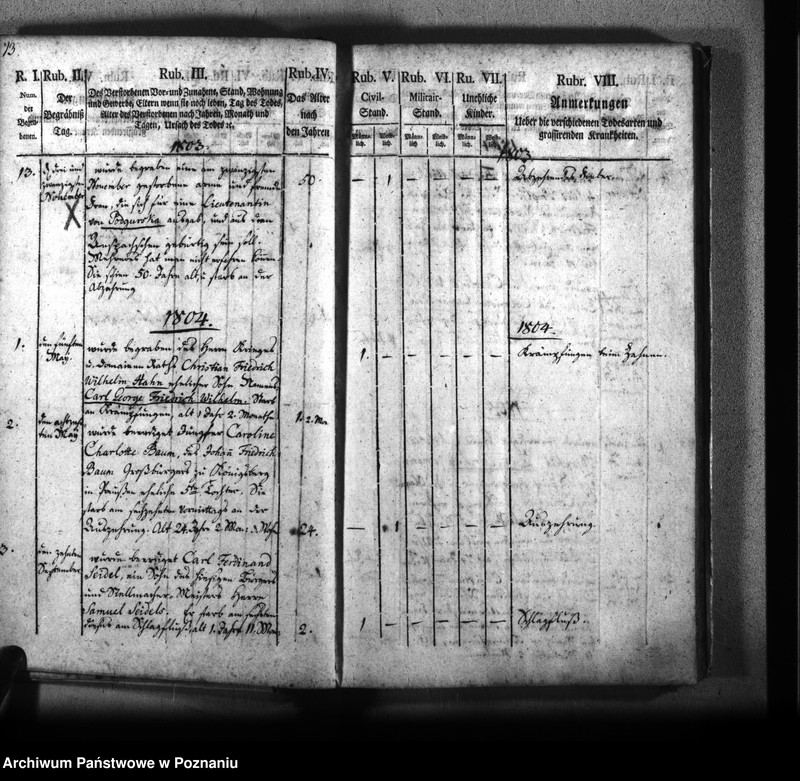 13
R. I. Rub. II. Rub. III. Rub. IV. Rub. V. Rub. VI. Ru. VII. Rubr. VIII.
Num. der Begrabenen.
Der Begräbniß Tag.
Des Verstorbenen Vor- und Zunahme, Stand, Wohnung
und Gewerbe, Eltern wenn sie noch leben, Tag des Todes,
Alter des Verstorbenen nach Jahren, Monath und
Tagen, Ursach des Todes ꝛc.
Das Alter
nach
den Jahren
Civil-
Stand.
Militair-
Stand.
Unehliche
Kinder.
Anmerkungen
Ueber die verschiedenen Todesarten und
grassirenden Krankheiten.
Männ-
lich.
Weib-
lich.
Männ-
lich.
Weib-
lich.
Männ-
lich.
Weib-
lich.
1803. 1803
13. November
wurde begraben eine am zwanzigsten
November gestorbene arme und fremde
die sich für eine Lieutenantin
von Podgurska ausgab, und aus dem
gebürtig seyn soll.
Mehreres hat man nicht erfahren können.
Sie schien 50. Jahre alt, u. starb an der
Abzehrung
50. — 1 — — — —
1804. 1804.
1. den fünften
May.
wurde begraben des Herrn Krieges
u. Domainen Raths Christian Friedrich
Wilhelm Hahn ehelicher Sohn Namens
Carl George Friedrich Wilhelm. Starb
an Krämpfungen, alt 1 Jahr 2. Monathe
1. 2. Mo. 1. — — — — — Krämpfungen beim Zahnen.
2. May
wurde beerdiget Jungfer Caroline
Charlotte Baum, des Johañ Friedrich
Baum Großbürgers zu Königsberg
in Preußen eheliche Tochter. Sie
starb am Vormittags an der
Auszehrung. Alt 24. Jahr 2. Mon.
24. — 1 — — — — Auszehrung.
3. den zehnten
September
wurde beerdiget Carl Ferdinand
Seidel, ein Sohn des hiesigen Bürgers
und Stellmacher-Meisters Herrn
Samuel Seidels. Er starb am
am Schlagfluß, alt 1. Jahr 11. Mo.
2. 1 — — — — — Schlagfluß.
Archiwum Państwowe w Poznaniu